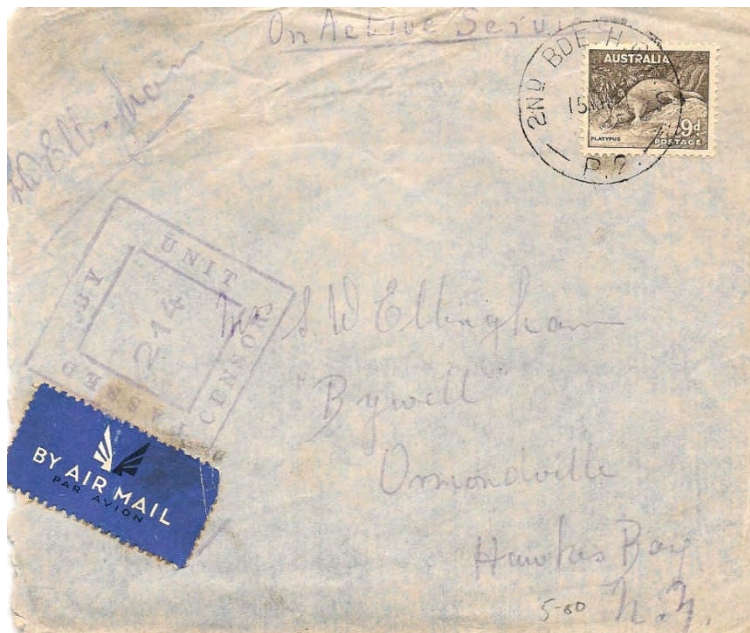 On Active Service
2ND BDE H.Q.
P.?
AUSTRALIA
PLATYPUS
9d
POSTAGE
PASSED BY UNIT CENSOR
214
Mrs S. W Ellingham
Bywell
Ormondville
Hawkes Bay
N.Z.
BY AIR MAIL
PAR AVION
5-00